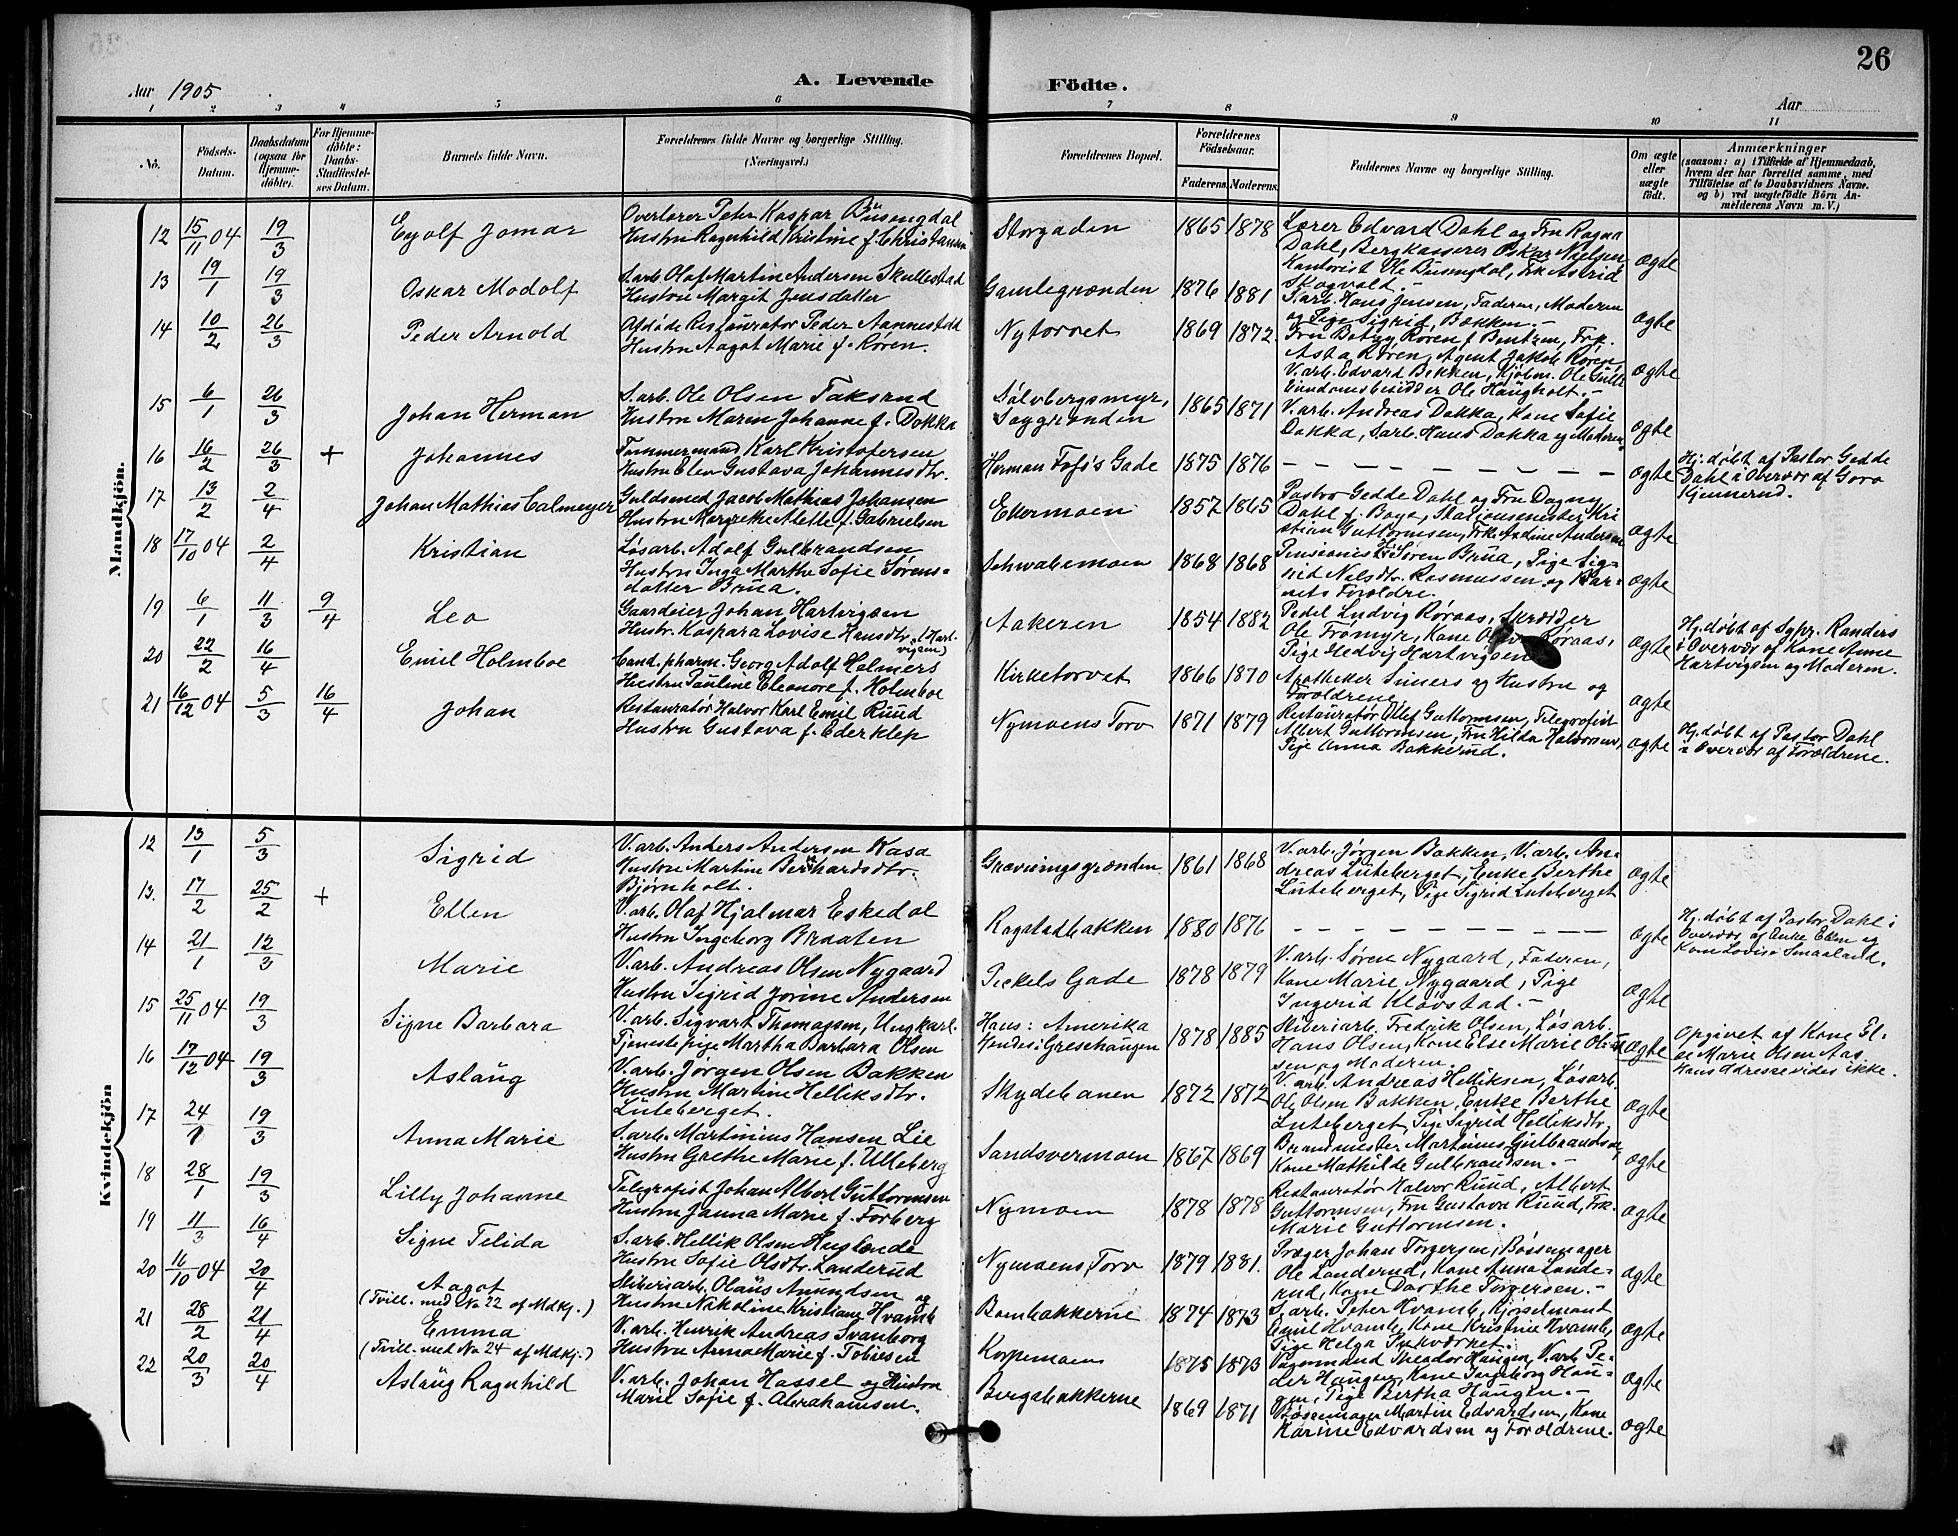 26
Aar 1905
A. Levende Födte.
Aar
1 2 3 4 5 6 7 8 9 10 11
No.
Födsels-Datum.
Daabsdatum (ogsaa for Hjemme-döbte).
For Hjemme-döbte: Daabs-Stadfæstel-ses Datum.
Barnets fulde Navn.
Forældrenes fulde Navne og borgerlige Stilling. (Næringsvei.)
Forældrenes Bopæl.
Forældrenes Födselsaar.
Faderens. Moderens.
Faddernes Navne og borgerlige Stilling.
Om ægte eller uægte födt.
Anmærkninger (saasom: a) i Tilfælde af Hjemmedaab, hvem der har forrettet samme, med Tilföielse af to Daabsvidners Navne. og b) ved uægtefödte Börn Anmelderens Navn m. V.)
Mandkjön.
12 15/11 04 19/3 Eyolf Jomar
Overlærer Peter Kaspar Büsengdal
Hustru Ragnhild Kristine f. Christiansen
Storgaden 1865 1878
Lærer Edvard Dahl og Fru Ragna
Dahl, Bergkasserer Oskar Nielsen
Kontorist Ole Büsengdal, Frk Astrid
Skogvold.-
ægte
13 19/1 19/3 Oskar Modolf
S.arb. Olaf Martin Andersen Skullestad
Hustru Margit Jensdatter
Gamlegrænden 1876 1881
S.arb. Hans Jensen, Faderen, Moderen
og Pige Sigrid Bækken.-
ægte
14 10/2 26/3 Peder Arnold
Afdøde Restauratør Peder Aannestad
Hustru Aagot Marie f. Røren.
Nytorvet 1869 1872.
Fru Betzy Røren f. Bentzen, Frk.
Asta Røren, Agent Jakob Røren,
ægte
15 6/1 26/3 Johan Herman
S.arb. Ole Olsen Taksrud
Hustru Maren Johanne f. Dokka
Sølvbergsmyr, Saggrænden 1865 1871
V.arb. Andreas Dokka, Kone Sofie
Dokka, S.arb. Hans Dokka og Moderen
ægte
16 16/2 26/3 + Johannes
Tømmermand Karl Kristofersen
Hustru Elen Gustava Johannesdtr.
Herman Fos's Gade 1875 1876
– – – – – – – – –
ægte
Hj. døbt af Pastor Gedde
Dahl i Overvær af Goro
Kjennerud.
17 13/2 2/4 Johan Mathias Calmeyer
Guldsmed Jacob Mathias Johansen
Hustru Margrethe Alette f. Gabrielsen
Ekermoen 1857 1865
Pastor Gedde Dahl og Fru Dagny
Dahl f. Boye, Stationsmester Kri-
stian Guttormsen, Frk. Andersen
ægte
18 17/10 04 2/4 Kristian
Løsarb. Adolf Gulbrandsen
Hustru Inga Marthe Sofie Sørens-
datter Brua.
Schwabemoen 1868 1868
Søren Brua, Pige Sig-
rid Nilsdtr. Rasmussen og Bar-
nets Forældre.
ægte
19 6/1 11/3 9/4 Leo
Gaardeier Johan Hartvigsen
Hustr. Kaspara Lovise Hansdtr. (Hart-
vigsen)
Aakeren 1854 1882
Pedel Ludvig Røraas, Skrædder
Ole Fromyr, Kone Røraas,
Pige Hedvig Hartvigsen
ægte
Hj. døbt af Sgpr. Randers
i Overvær af Kone Anne
Hartvigsen og Moderen.
20 22/2 16/4 Emil Holmboe
Cand. pharm. Georg Adolf Helmers
Hustru Pauline Eleonore f. Holmboe
Kirketorvet 1866 1870
Apotheker og Hustru og
Forældrene
ægte
21 16/12 04 5/3 16/4 Johan
Restauratør Halvor Karl Emil Ruud
Hustru Gustava f. Ederklep
Nymoens Torv 1871 1879
Restauratør Guttormsen, Telegrafist
Albert Guttormsen, Fru Hilda Halvorsen,
Pige Anna Bakkerud.
ægte
Hj. døbt af Pastor Dahl
i Overvær af Forældrene.
Kvindekjön
12 13/1 5/3 Sigrid
V.arb. Anders Andersen Kasa
Hustru Martine Bernhardsdtr.
Bjørnholt.
Graveningsgrænden 1861 1868
V.arb. Jørgen Bakken, V.arb. An-
dreas Luteberget, Enke Berthe
Luteberget, Pige Sigrid Luteberget
ægte
13. 17/2 25/2 + Ellen
V.arb. Olaf Hjalmar Eskedal
Hustru Ingeborg Braaten
Rogstadbakken 1880 1876
– – – – – – – – –
ægte
Hj. døbt af Pastor Dahl i
Overvær af Enke Ellen og
Kone Lovise Smaaland.
14 21/1 12/3 Marie
V.arb. Andreas Olsen Nygaard
Hustru Sigrid Jorine Andersen
Peckels Gade 1878 1879
V.arb. Søren Nygaard, Faderen,
Kone Marie Nygaard, Pige
Ingerid Kløvstad.-
ægte
15 25/11 04 19/3 Signe Barbara
V.arb. Sigvart Thomassen, Ungkarl.
Tjenestepige Martha Barbara Olsen
Hans: Amerika
Hendes: Gresehaugen 1878 1885
Skiferiarb. Fredrik Olsen, Løsarb.
Hans Olsen, Kone Else Marie Ol-
sen og Moderen.
uægte
Opgivet af Kone El-
se Marie Olsen Aas.
Hans Addresse vides ikke.
16 17/12 04 19/3 Aslaug
V.arb. Jørgen Olsen Bakken
Hustru Martine Helliksdtr.
Luteberget.
Skydebanen 1872 1872
V.arb. Andreas Helliksen, Løsarb.
Ole Olsen Bakken, Enke Berthe
Luteberget, Pige Sigrid Helliksdtr.
ægte
17 24/1 19/3 Anna Marie
S.arb. Martinius Hansen Lie
Hustru Grethe Marie f. Ulleberg
Sandsvermoen 1867 1869
Brandmester Martinius Gulbrandsen,
Kone Mathilde Gulbrandsen.-
ægte
18 28/1 19/3 Lilly Johanne
Telegrafist Johan Albert Guttormsen
Hustru Janna Marie f. Forberg
Nymoen 1878 1878
Restauratør Halvor Ruud, Albert
Guttormsen, Fru Gustava Ruud, Frk.
Marie Guttormsen.
ægte
19 11/3 16/4 Signe Telida
S.arb. Hellik Olsen
Hustru Sofie Olsdtr. Landerud
Nymoens Torv 1879 1881.
Præger Johan Torgersen, Bøssemager
Ole Landerud, Kone Anna Lande-
rud, Kone Dorthe Torgersen.-
ægte
20 16/10 04 20/4 Aagot
(Tvill. med No 22 af Mdkj.)
Skiferiarb. Olaus Amundsen og
Hustru Nikoline Kristiane Hvamb
Bombakkerne 1874 1873
S.arb. Peter Hvamb, Kjørselmand
Emil Hvamb, Kone Kristine Hvamb,
Pige Helga
ægte
21 28/2 21/4 Emma
(Tvill. med No 24 af Mdkj.)
V.arb. Henrik Andreas Svanborg
Hustru Anna Marie f. Tobiesen
Korpemoen 1875 1873
Vognmand Theodor Haugen, V.arb. Pe-
der Haugen, Kone Ingeborg Hau-
gen, Pige Bertha Haugen.-
ægte
22 20/3 20/4 Aslaug Ragnhild
V.arb. Johan Hassel og Hustru
Marie Sofie f. Abrahamsen.
Bergsbakkerne 1869 1871
Bøssemager Martin Edvardsen, Kone
Karine Edvardsen og Forældrene.
ægte